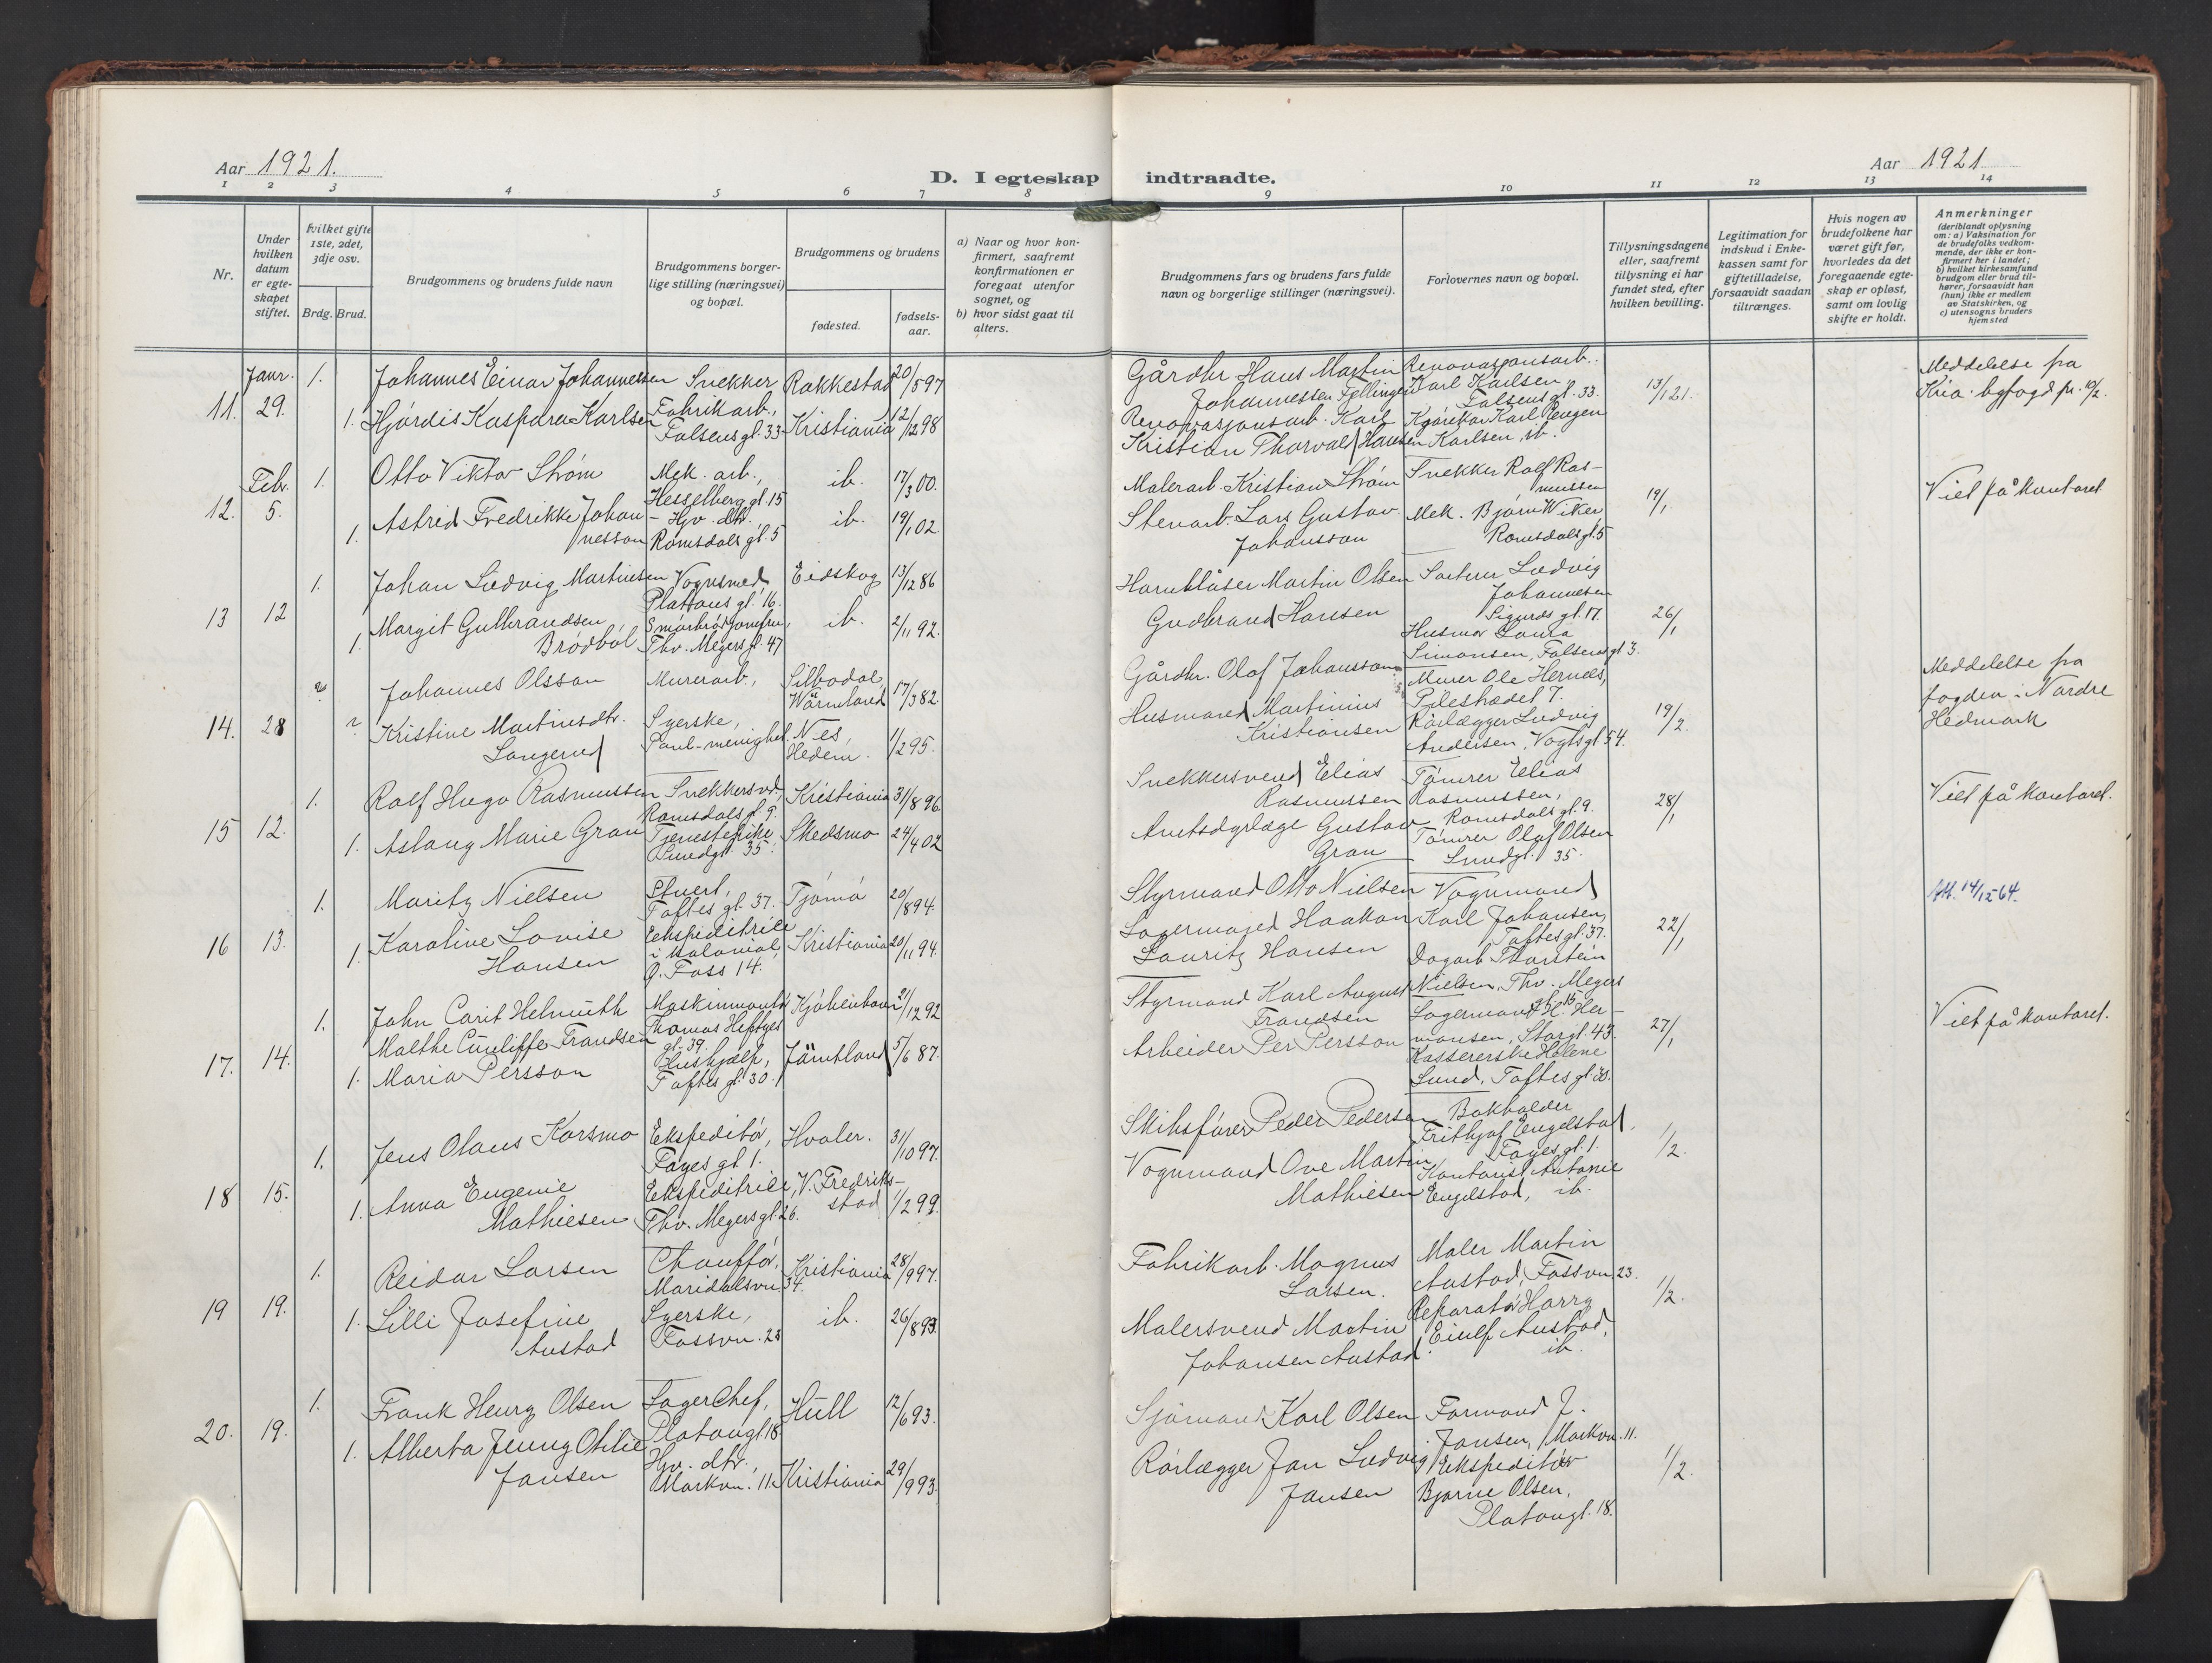 Aar 1921.
D. I egteskap indtraadte.
Aar 1921
1 2 3 4 5 6 7 8 9 10 11 12 13 14
Nr.
Under hvilken datum er egteskapet stiftet.
hvilket gifte 1ste, 2det, 3dje osv.
Brdg. Brud.
Brudgommens og brudens fulde navn
Brudgommens borgerlige stilling (næringsvei) og bopæl.
Brudgommens og brudens
fødested.
fødselsaar.
a) Naar og hvor konfirmert, saafremt konfirmationen er foregaat utenfor sognet, og
b) hvor sidst gaat til alters.
Brudgommens fars og brudens fars fulde navn og borgerlige stillinger (næringsvei).
Forlovernes navn og bopæl.
Tillysningsdagene eller, saafremt tillysning ei har fundet sted, efter hvilken bevilling.
Legitimation for indskud i Enkekassen samt for giftetilladelse, forsaavidt saadan tiltrænges.
Hvis nogen av brudefolkene har været gift før, hvorledes da det foregaaende egteskap er opløst, samt om lovlig skifte er holdt.
Anmerkninger (deriblandt oplysning om: a) Vaksination for de brudefolks vedkommende, der ikke er konfirmert her i landet; b) hvilket kirkesamfund brudgom eller brud tilhører, forsaavidt han (hun) ikke er medlem av Statskirken, og c) utensogns bruders hjemsted
11. Janr. 29. 1. Johannes Einar Johannessen Snekker Rakkestad 20/5 97
1. Hjørdis Kaspara Karlsen Fabrikarb., Falsens gt. 33 Kristiania 12/12 98
Gårdbr. Hans Martin Johannessen Fjellingen
Renovasjonsarb. Karl Karlsen Falsens gt. 33.
13/1 21.
Renovasjonsarb. Karl Kristian Thorvald Hansen
Kjørekar Karl Eugen Karlsen, ib.
Meddelelse fra Kria. byfogd pr. 10/2.
12. Febr. 5. 1. Otto Viktor Strøm Mek. arb., Hesselberg gt. 15 ib. 17/3 00.
1. Astrid Fredrikke Johannesson Hjv. dtr. Romsdals gt. 5 ib. 19/1 02.
Malerarb. Kristian Strøm
Snekker Rolf Rasmussen
19/1
Stenarb. Lars Gustav Johansson
Mek. Bjørn Wiker Romsdals gt. 5
Viet på kontoret
13 12 1. Johan Ludvig Martinsen Vognsmed, Platous gt. 16. Eidskog 13/12 86
1. Margit Gulbrandsen Brødbøl Smørbrødjomfru, Thv. Meyers gt. 47 ib. 2/11 92.
Hornblåser Martin Olsen
Ludvig Johannesen Sigurds gt. 17.
26/1
Gudbrand Hansen
Husmor Laura Simonsen, Falsens gt 3.
14. 28 Johannes Olsson Murerarb., Silbodal, Wärmland 17/3 82.
Kristine Martinsdtr. Langerud Syerske, Paul-menighet. Nes, Hedem. 1/2 95.
Gårdbr. Olof Johansson
Murer Ole Hernæs, Pilestrædet 7.
19/2.
Husmand Martinius Kristiansen
Rørlægger Ludvig Andersen, Vogts gt 54.
Meddelelse fra fogden i Nordre Hedmark
15 12. 1. Rolf Hugo Rasmussen Snekkersvd., Romsdals gt. 9. Kristiania 31/8 96.
1. Aslaug Marie Gran Tjenestepike Lundgt. 35. Skedsmo 24/4 02
Snekkersvend Elias Rasmussen
Tømrer Elias Rasmussen, Romsdals gt. 9.
28/1
Amtsdyrlæge Gustav Gran
Tømrer Olaf Olsen Lundgt. 35.
Viet på kontoret.
16 13. 1. Moritz Nielsen Stuert, Toftes gt. 37. Tjømø 20/8 94.
1. Karoline Lovise Hansen Ekspeditrice i kolonial, Ø. Foss 14. Kristiania 20/11 94.
Styrmand Otto Nielsen
Vognmand Karl Johansen, Toftes gt. 37.
22/1
Lagermand Haakon Lauritz Hansen
Dagarb Thorstein Nielsen, Thv. Meyers gt. 15
14/12 64.
17. 14. 1. John Carit Helmuth Malthe Cunliffe Frandsen Maskinmontør Thomas Heftyes gt. 39. Kjøbenhavn 21/12 92
1. Maria Persson Hushjælp, Toftes gt. 30. Jämtland 5/6 87.
Styrmand Karl August Frandsen
Lagermand H. Hermansen, Storgt. 43.
27/1
Arbeider Per Persson
Kassererske Helene Lund, Toftes gt. 30.
Viet på kontoret.
18 15. 1. Jens Olaus Korsmo Ekspeditør, Fayes gt. 1. Hvaler. 31/10 97.
1. Anna Eugenie Mathiesen Ekspeditrice, Thv. Meyers gt. 26. V. Fredrikstad 1/2 99.
Skibsfører Peder Pedersen
Bokholder Frithjof Engelstad, Fayes gt. 1.
1/2.
Vognmand Ove Martin Mathiesen
Kontorist Antonie Engelstad, ib.
19 19. 1. Reidar Larsen Chauffør, Maridalsvn. 34. Kristiania 28/9 97.
1. Lilli Josefine Austad Syerske, Fossvn. 23 ib. 26/8 93.
Fabrikarb. Magnus Larsen.
Maler Martin Austad, Fossvn. 23.
1/2.
Malersvend Martin Johansen Austad.
Reparatør Harry Eiulf Austad, ib.
20. 19. 1. Frank Henry Olsen Lagerchef, Platougt. 18 Hull 12/6 93.
1. Alberta Jenny Otilie Jansen Hjv. dtr., Markvn. 11. Kristiania 29/9 93
Sjømand Karl Olsen
Formand J. Jansen, Markvn. 11.
1/2.
Rørlægger Jan Ludvig Jansen
Ekspeditør Bjarne Olsen, Platougt. 18.